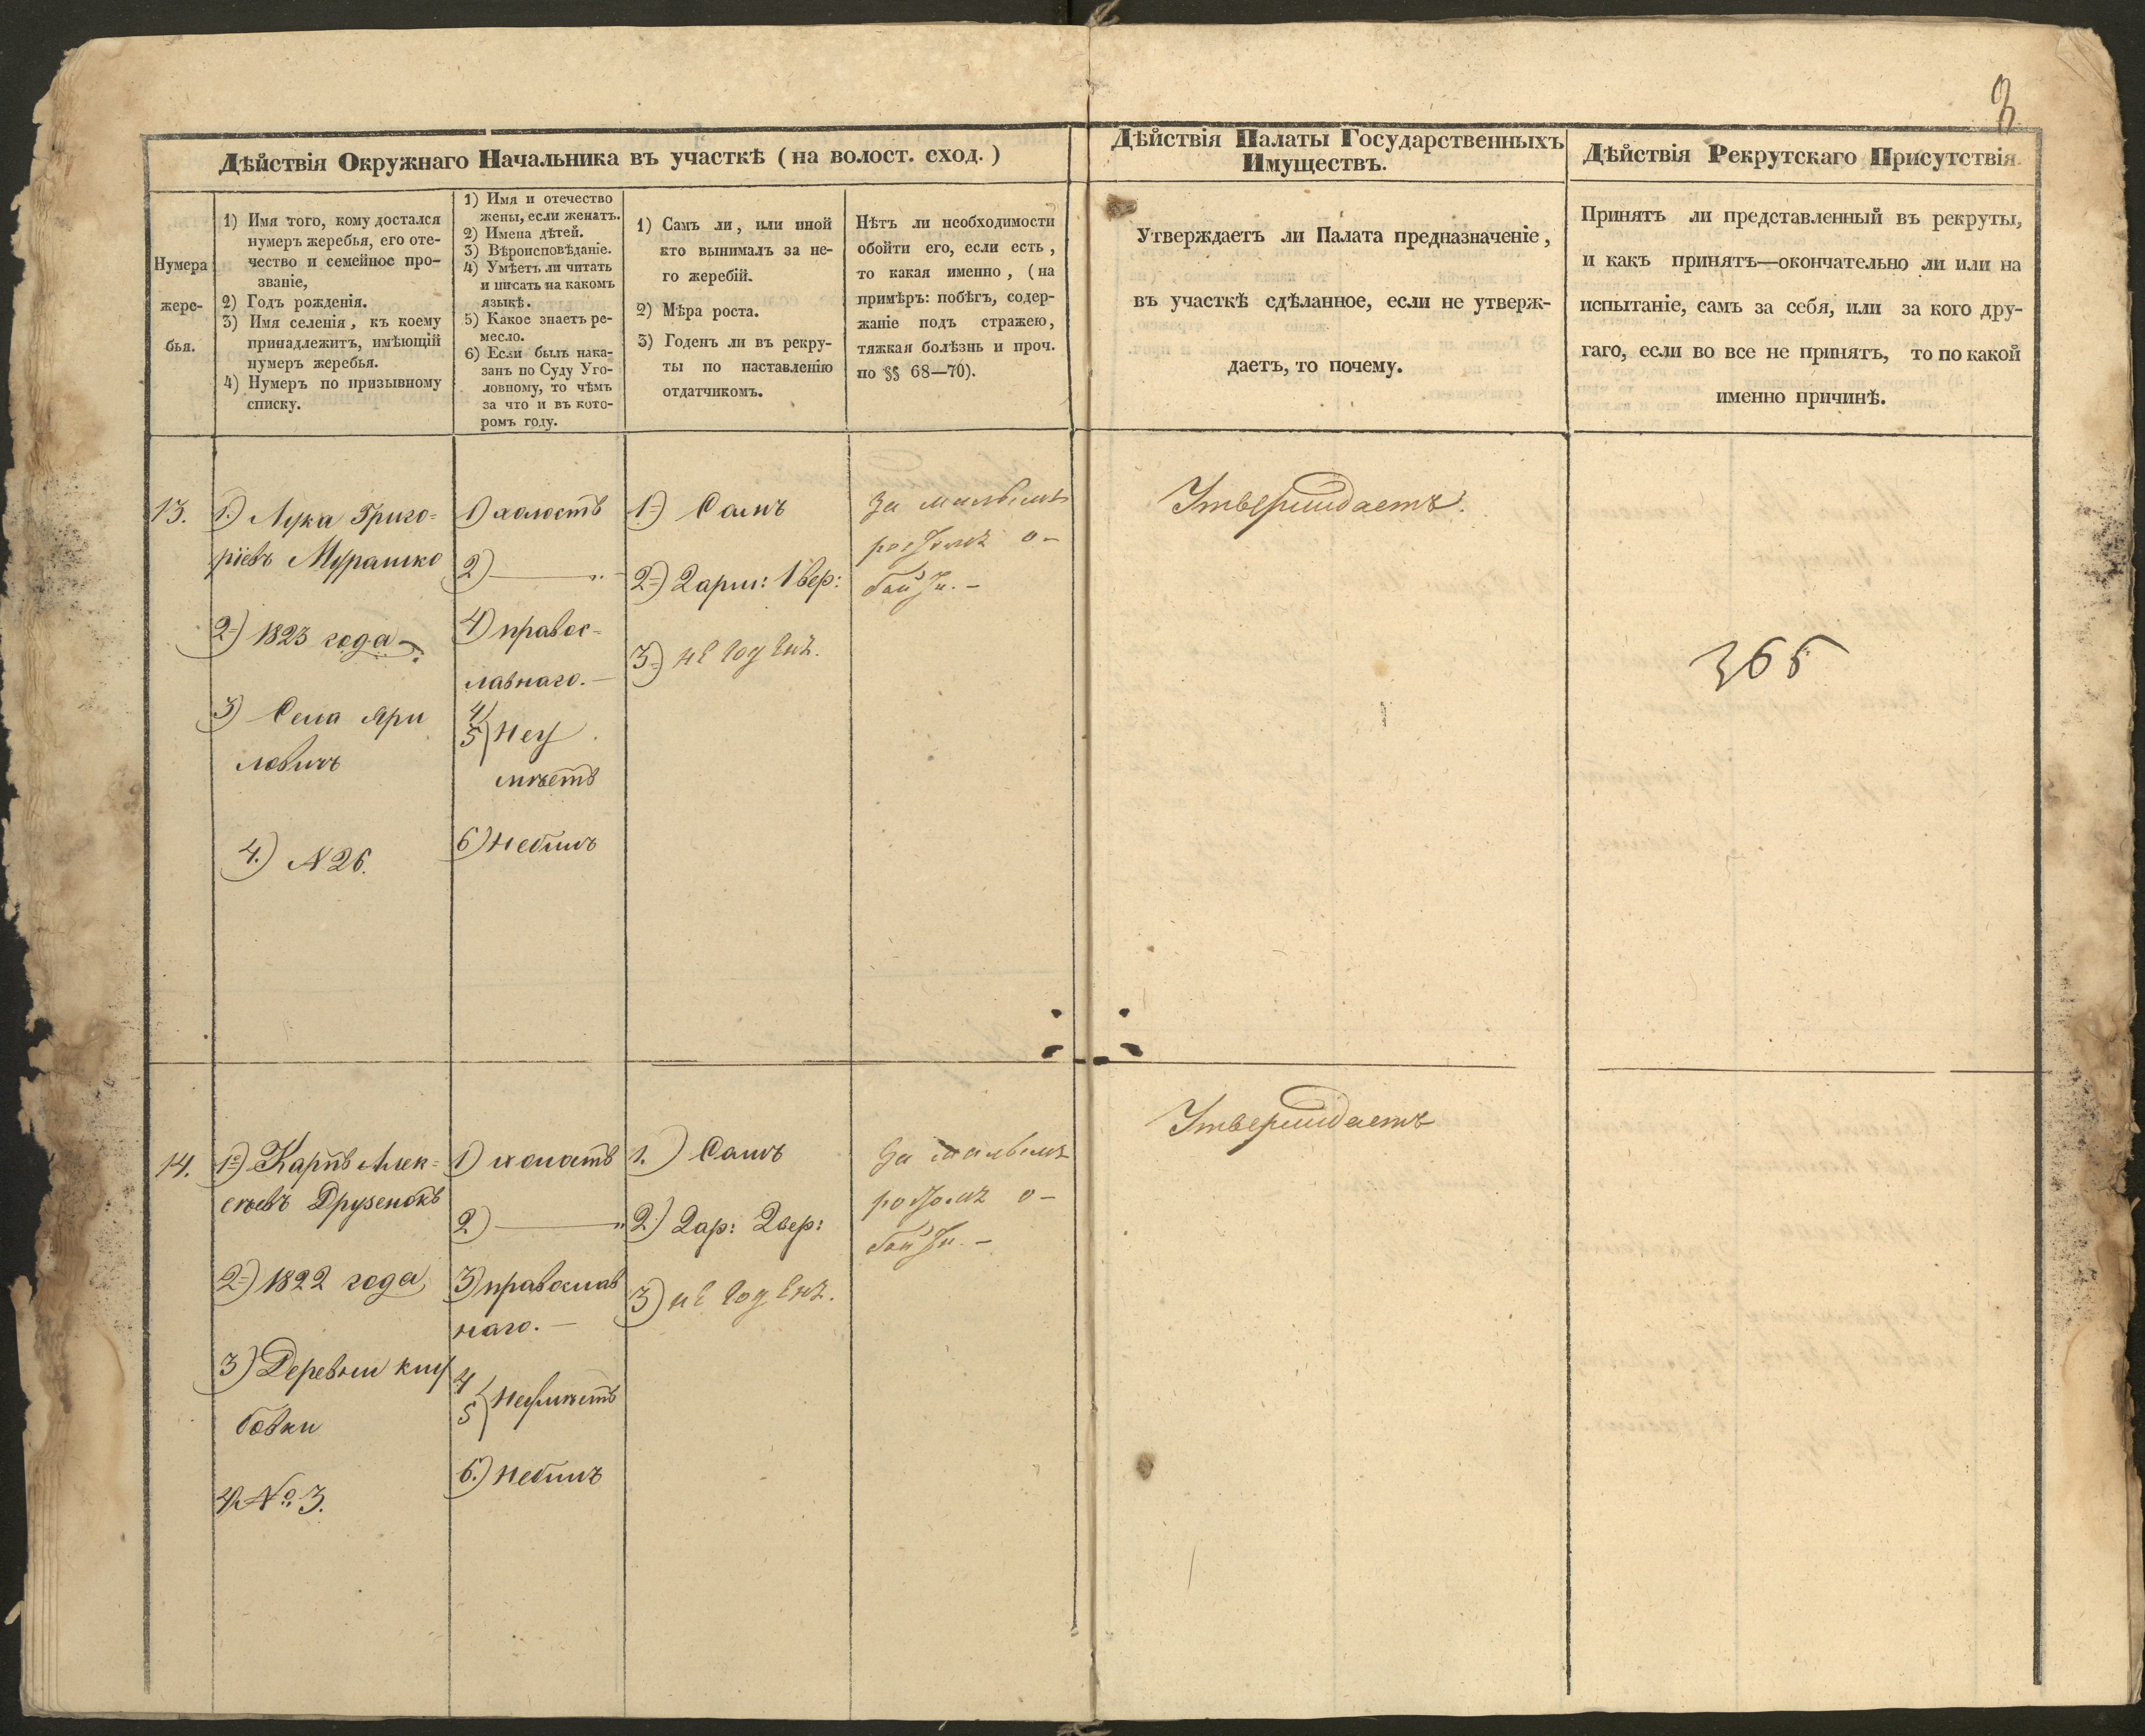 Дѣйствія Окружнаго Начальника въ участкѣ (на волост. сход.)
Нумера
жере-
бья.
1) Имя того, кому достался
нумеръ жеребья, его оте-
чество и семейное про-
званіе,
2) Годъ рожденія.
3) Имя селенія, къ коему
принадлежитъ, имѣющій
нумеръ жеребья.
4) Нумеръ по призывному
списку.
1) Имя и отечество
жены, если женатъ.
2) Имена дѣтей.
3) Вѣроисповѣданіе.
4) Умѣетъ ли читать
и писать на какомъ
языкѣ.
5) Какое знаетъ ре-
месло.
6) Если былъ нака-
занъ по Суду Уго-
ловному, то чѣмъ
за что и въ кото-
ромъ году.
1) Самъ ли, или иной
кто вынималъ за не-
го жеребій.
2) Мѣра роста.
3) Годенъ ли въ рекру-
ты по наставленію
отдатчикомъ.
Нѣтъ ли необходимости
обойти его, если есть,
то какая именно, (на
примѣръ: побѣгъ, содер-
жаніе подъ стражею,
тяжкая болѣзнь и проч.
по §§ 68—70).
13.
1.) Лука Григо=
ріевъ Мурашко
2=) 1823 года
3) Села Яри
ловичъ
4.) N 26.
1) холостъ
2) —
4) правос=
лавнаго.—
4/
5) Неу
мѣетъ
6) Небылъ
1=) Самъ
2=) 2 арш: 1 вер:
3=) не годенъ.
За малымъ
ростомъ о-
байти.—
14.
1=) Карпъ Алек=
сѣевъ Друзенокъ
2=) 1822 года
3) Деревни клу
бовки
4) №. 3.
1) холостъ
2) —
3) православ
наго.—
4/
5) Неумѣетъ
6.) Небылъ
1.) Самъ
2.) 2 ар: 2 вер:
3) не годенъ.
За малымъ
ростомъ о-
байти.—
Дѣйствія Палаты Государственныхъ
Имуществъ.
Утверждаетъ ли Палата предназначеніе,
въ участкѣ сдѣланное, если не утверж-
даетъ, то почему.
Утверждаетъ.
Утверждаетъ
Дѣйствія Рекрутскаго Присутствія
Принятъ ли представленный въ рекруты,
и какъ принятъ—окончательно ли или на
испытаніе, самъ за себя, или за кого дру-
гаго, если во все не принятъ, то по какой
именно причинѣ.